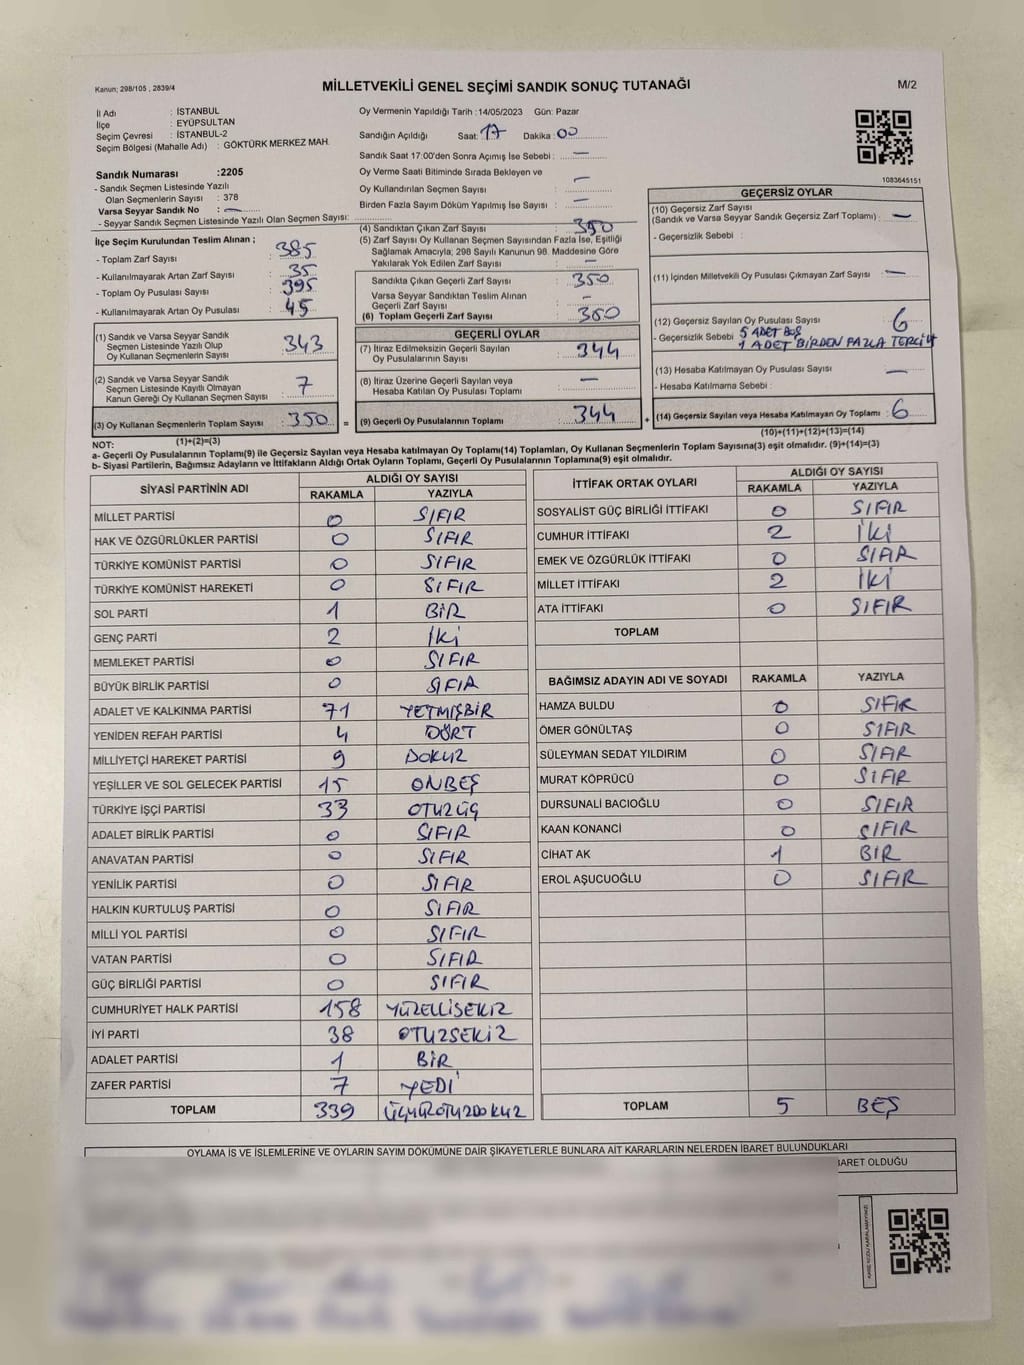 Kanun; 298/105 , 2839/4
MİLLETVEKİLİ GENEL SEÇİMİ SANDIK SONUÇ TUTANAĞI
M/2
İl Adı : İSTANBUL
İlçe : EYÜPSULTAN
Seçim Çevresi : İSTANBUL-2
Seçim Bölgesi (Mahalle Adı) : GÖKTÜRK MERKEZ MAH.
Sandık Numarası :2205
- Sandık Seçmen Listesinde Yazılı
Olan Seçmenlerin Sayısı : 378
Varsa Seyyar Sandık No : —
- Seyyar Sandık Seçmen Listesinde Yazılı Olan Seçmen Sayısı:
Oy Vermenin Yapıldığı Tarih :14/05/2023 Gün: Pazar
Sandığın Açıldığı Saat: 17 Dakika : 00
Sandık Saat 17:00'den Sonra Açımış İse Sebebi : —
Oy Verme Saati Bitiminde Sırada Bekleyen ve
Oy Kullandırılan Seçmen Sayısı : —
Birden Fazla Sayım Döküm Yapılmış İse Sayısı : —
1083645151
İlçe Seçim Kurulundan Teslim Alınan ;
- Toplam Zarf Sayısı : 385
- Kullanılmayarak Artan Zarf Sayısı : 35
- Toplam Oy Pusulası Sayısı : 395
- Kullanılmayarak Artan Oy Pusulası : 45
(1) Sandık ve Varsa Seyyar Sandık
Seçmen Listesinde Yazılı Olup
Oy Kullanan Seçmenlerin Sayısı : 343
(2) Sandık ve Varsa Seyyar Sandık
Seçmen Listesinde Kayıtlı Olmayan
Kanun Gereği Oy Kullanan Seçmen Sayısı : 7
(3) Oy Kullanan Seçmenlerin Toplam Sayısı : 350 =
(1)+(2)=(3)
(4) Sandıktan Çıkan Zarf Sayısı : 350
(5) Zarf Sayısı Oy Kullanan Seçmen Sayısından Fazla İse, Eşitliği
Sağlamak Amacıyla, 298 Sayılı Kanunun 98. Maddesine Göre
Yakılarak Yok Edilen Zarf Sayısı : —
Sandıkta Çıkan Geçerli Zarf Sayısı : 350
Varsa Seyyar Sandıktan Teslim Alınan
Geçerli Zarf Sayısı : —
(6) Toplam Geçerli Zarf Sayısı : 350
GEÇERLİ OYLAR
(7) İtiraz Edilmeksizin Geçerli Sayılan
Oy Pusulalarının Sayısı : 344
(8) İtiraz Üzerine Geçerli Sayılan veya
Hesaba Katılan Oy Pusulası Toplamı : —
(9) Geçerli Oy Pusulalarının Toplamı : 344 +
GEÇERSİZ OYLAR
(10) Geçersiz Zarf Sayısı
(Sandık ve Varsa Seyyar Sandık Geçersiz Zarf Toplamı) : —
- Geçersizlik Sebebi :
(11) İçinden Milletvekili Oy Pusulası Çıkmayan Zarf Sayısı : —
(12) Geçersiz Sayılan Oy Pusulası Sayısı : 6
- Geçersizlik Sebebi : 5 ADET BOŞ
1 ADET BİRDEN FAZLA TERCİH
(13) Hesaba Katılmayan Oy Pusulası Sayısı : —
- Hesaba Katılmama Sebebi :
(14) Geçersiz Sayılan veya Hesaba Katılmayan Oy Toplamı : 6
(10)+(11)+(12)+(13)=(14)
NOT:
a- Geçerli Oy Pusulalarının Toplamı(9) ile Geçersiz Sayılan veya Hesaba katılmayan Oy Toplamı(14) Toplamları, Oy Kullanan Seçmenlerin Toplam Sayısına(3) eşit olmalıdır. (9)+(14)=(3)
b- Siyasi Partilerin, Bağımsız Adayların ve İttifakların Aldığı Ortak Oyların Toplamı, Geçerli Oy Pusulalarının Toplamına(9) eşit olmalıdır.
SİYASİ PARTİNİN ADI ALDIĞI OY SAYISI
RAKAMLA YAZIYLA
MİLLET PARTİSİ 0 SIFIR
HAK VE ÖZGÜRLÜKLER PARTİSİ 0 SIFIR
TÜRKİYE KOMÜNİST PARTİSİ 0 SIFIR
TÜRKİYE KOMÜNİST HAREKETİ 0 SIFIR
SOL PARTİ 1 BİR
GENÇ PARTİ 2 İKİ
MEMLEKET PARTİSİ 0 SIFIR
BÜYÜK BİRLİK PARTİSİ 0 SIFIR
ADALET VE KALKINMA PARTİSİ 71 YETMİŞBİR
YENİDEN REFAH PARTİSİ 4 DÖRT
MİLLİYETÇİ HAREKET PARTİSİ 9 DOKUZ
YEŞİLLER VE SOL GELECEK PARTİSİ 15 ONBEŞ
TÜRKİYE İŞÇİ PARTİSİ 33 OTUZÜÇ
ADALET BİRLİK PARTİSİ 0 SIFIR
ANAVATAN PARTİSİ 0 SIFIR
YENİLİK PARTİSİ 0 SIFIR
HALKIN KURTULUŞ PARTİSİ 0 SIFIR
MİLLİ YOL PARTİSİ 0 SIFIR
VATAN PARTİSİ 0 SIFIR
GÜÇ BİRLİĞİ PARTİSİ 0 SIFIR
CUMHURİYET HALK PARTİSİ 158 YÜZELLİSEKİZ
İYİ PARTİ 38 OTUZSEKİZ
ADALET PARTİSİ 1 BİR
ZAFER PARTİSİ 7 YEDİ
TOPLAM 339 ÜÇYÜZOTUZDOKUZ
İTTİFAK ORTAK OYLARI ALDIĞI OY SAYISI
RAKAMLA YAZIYLA
SOSYALİST GÜÇ BİRLİĞİ İTTİFAKI 0 SIFIR
CUMHUR İTTİFAKI 2 İKİ
EMEK VE ÖZGÜRLÜK İTTİFAKI 0 SIFIR
MİLLET İTTİFAKI 2 İKİ
ATA İTTİFAKI 0 SIFIR
TOPLAM
BAĞIMSIZ ADAYIN ADI VE SOYADI RAKAMLA YAZIYLA
HAMZA BULDU 0 SIFIR
ÖMER GÖNÜLTAŞ 0 SIFIR
SÜLEYMAN SEDAT YILDIRIM 0 SIFIR
MURAT KÖPRÜCÜ 0 SIFIR
DURSUNALİ BACIOĞLU 0 SIFIR
KAAN KONANCİ 0 SIFIR
CİHAT AK 1 BİR
EROL AŞUCUOĞLU 0 SIFIR
TOPLAM 5 BEŞ
OYLAMA İŞ VE İŞLEMLERİNE VE OYLARIN SAYIM DÖKÜMÜNE DAİR ŞİKAYETLERLE BUNLARA AİT KARARLARIN NELERDEN İBARET BULUNDUKLARI
BARET OLDUĞU